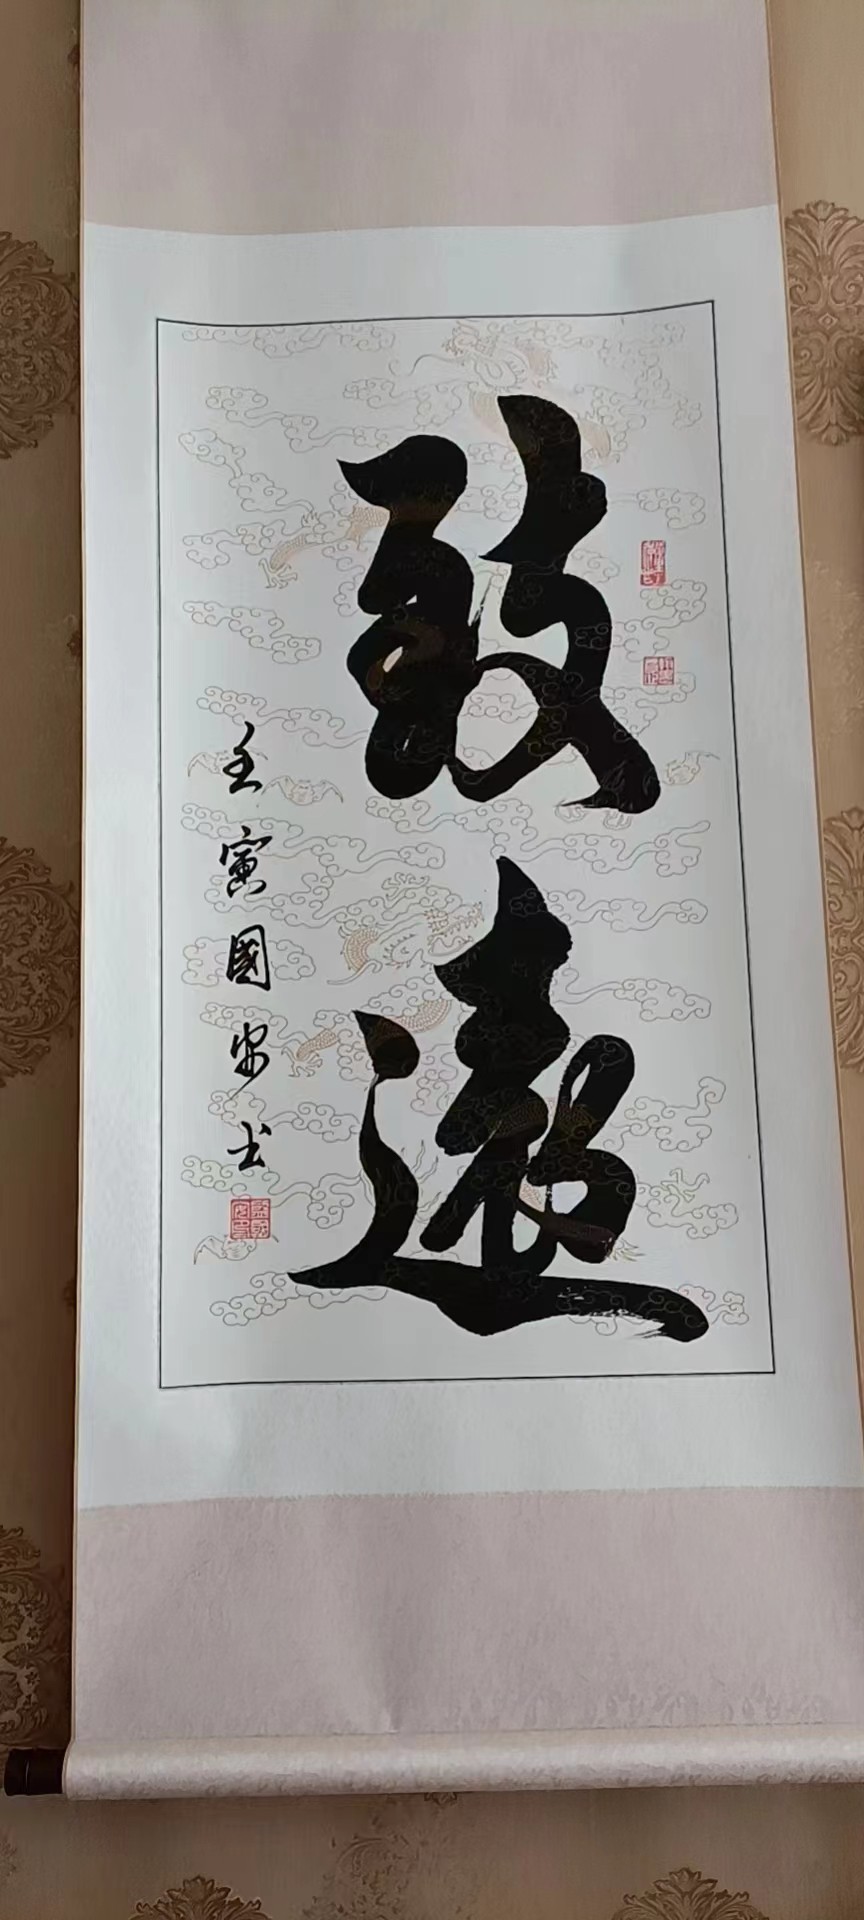 致遠
壬寅國安书